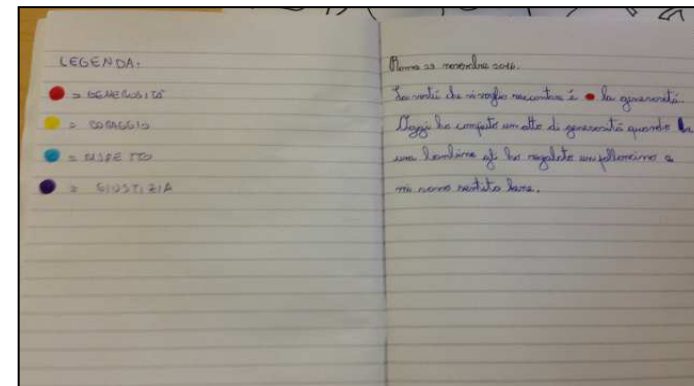 LEGENDA.
= GENEROSITÀ
= CORAGGIO
= RISPETTO
= GIUSTIZIA
Roma 23 novembre 2016.
La virtù che vi voglio raccontare è la generosità.
Oggi ho compiuto un atto di generosità quando
una bambina ho regalato un palloncino e
mi sono sentito bene.